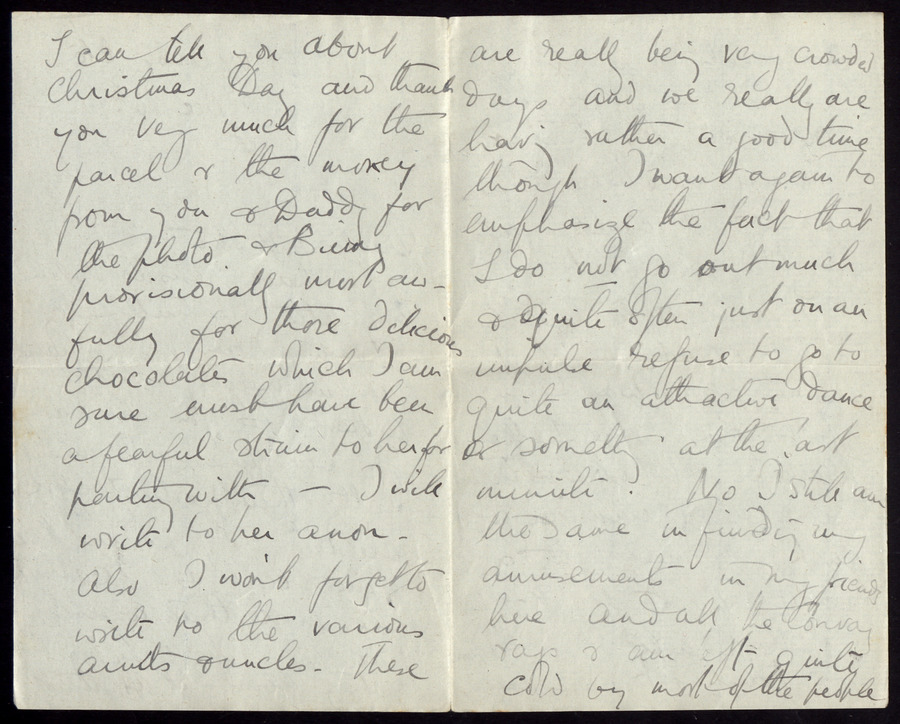 I can tell you about
Christmas Day and thank
you very much for the
parcel & the money
from you & Daddy for
the photo &
provisionally most aw-
fully for those delicious
chocolates which I am
sure must have been
a fearful strain to her for
parting with — I will
write to her anon -
Also I won't forget to
write to the various
aunts & uncles - These
are really being very crowded
days and we really are
having rather a good time
though I want again to
emphasize the fact that
I do not go out much
& quite often just on an
impulse refuse to go to
quite an attractive dance
or something at the last
minute. No I still am
the same in finding my
amusements in my friends
here and all the
& am left quite
cold by most of the people